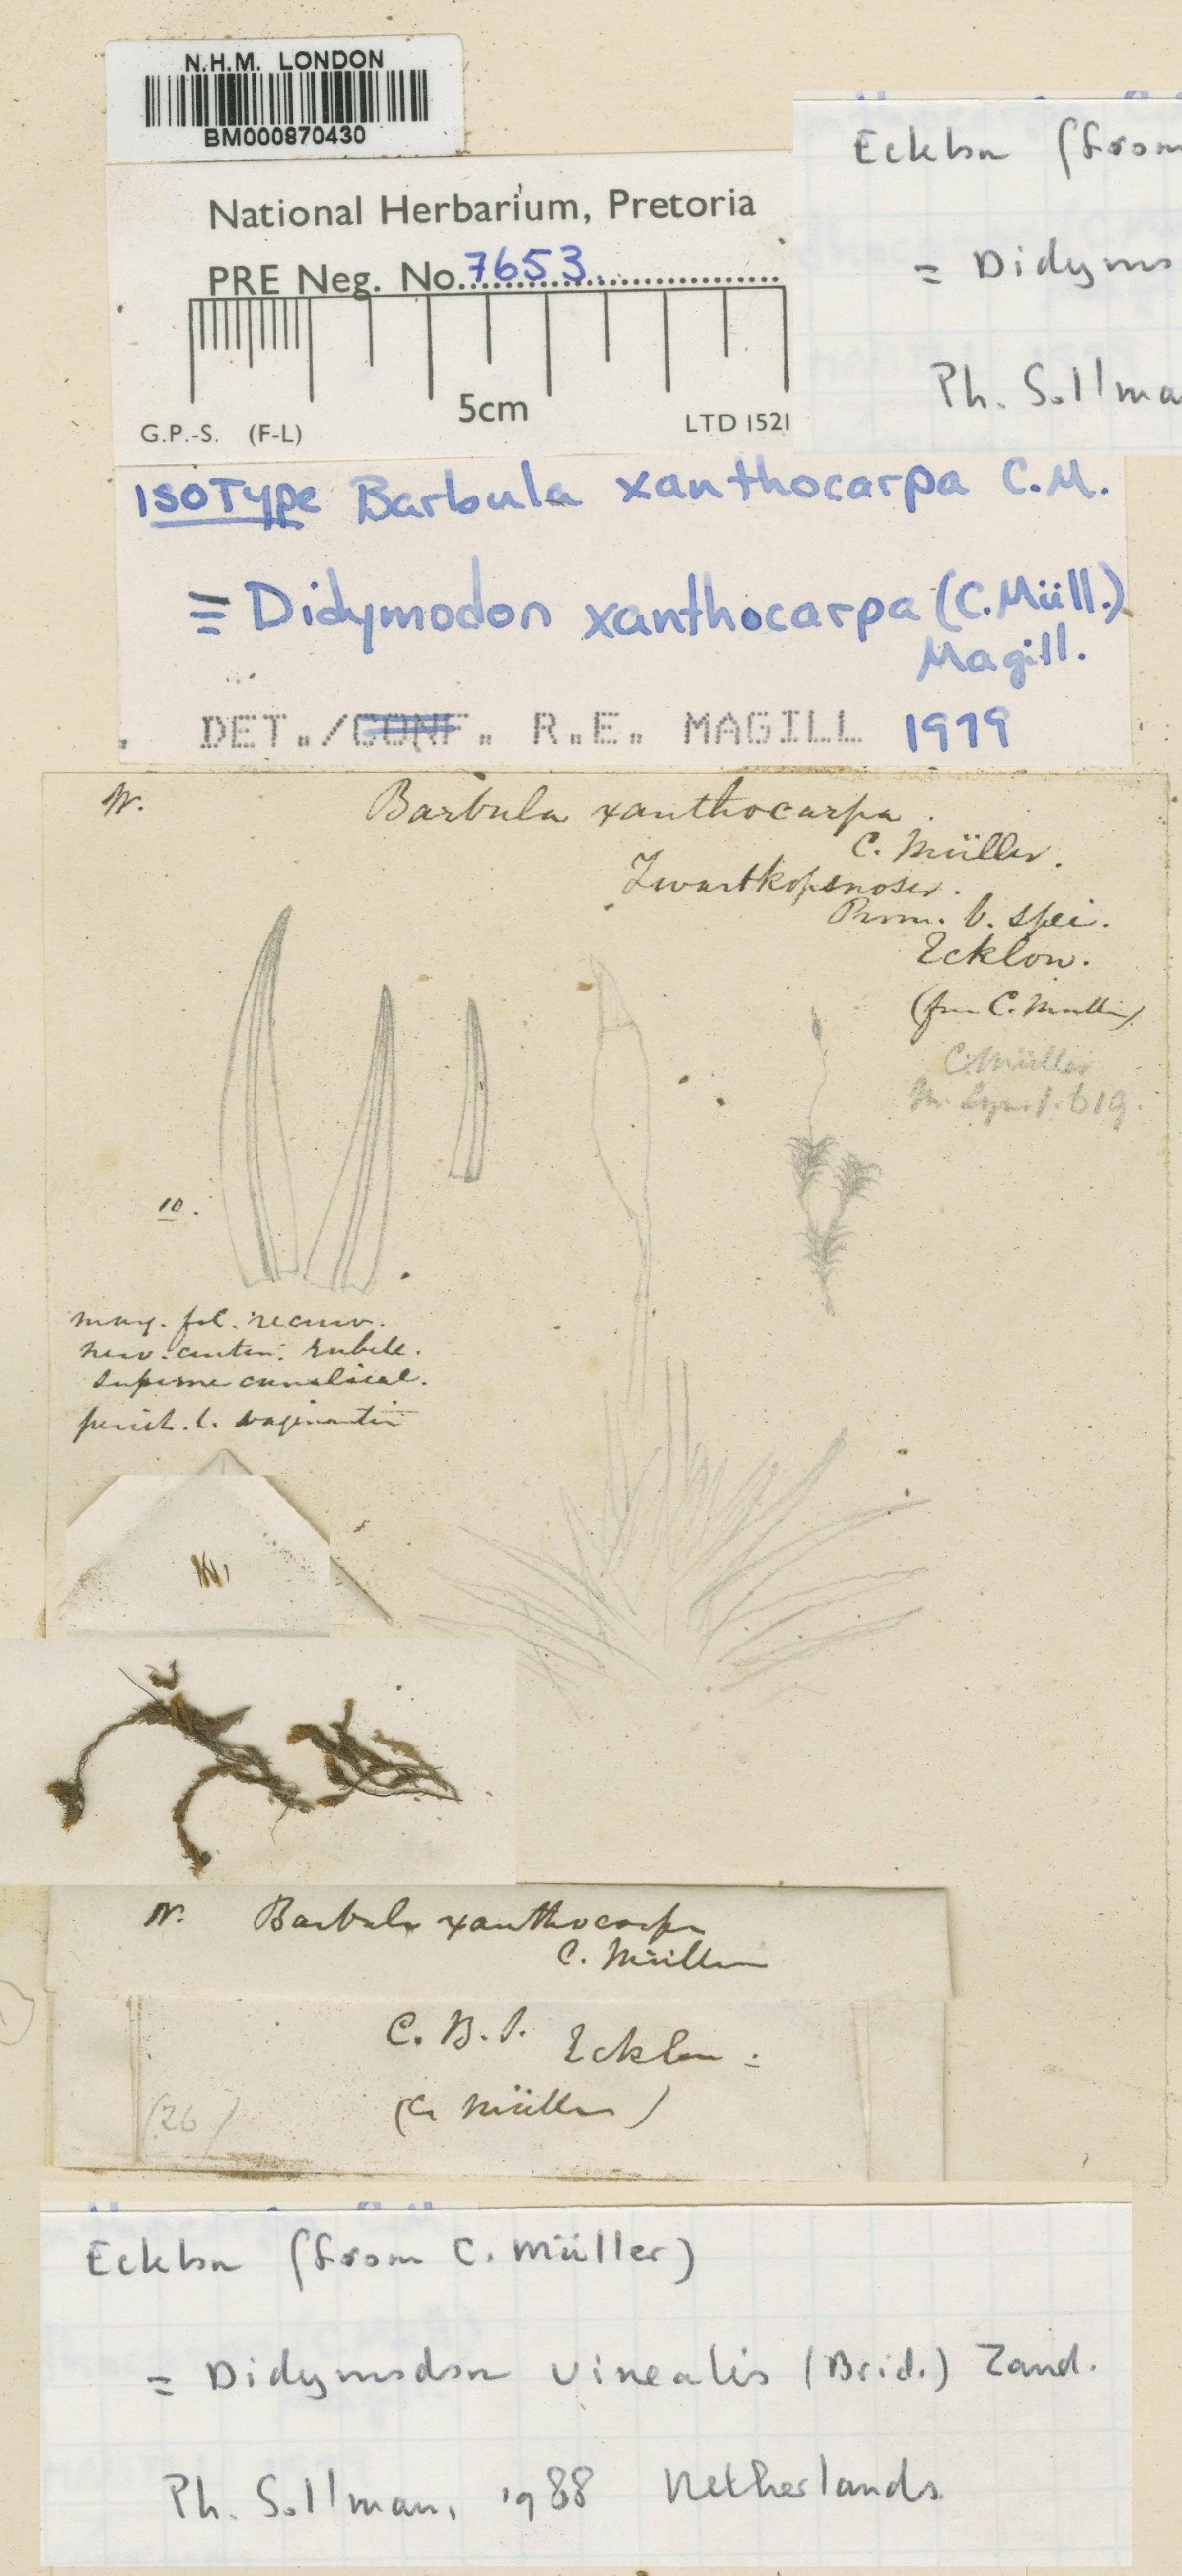 N.H.M. LONDON
BM000870430
Ecklon (from
= Didymo
Ph. Sollma
National Herbarium, Pretoria
PRE Neg. No. 7653
5cm
G.P.-S. (F-L)
LTD 1521
ISOTYPE Barbula xanthocarpa C.M.
≡ Didymodon xanthocarpa (C.Müll.)
Magill.
DET./CONF. R.E. MAGILL 1979
W. Barbula xanthocarpa.
C. Müller.
Zwartkopsrivier.
Prom. b. spei.
Ecklon.
(from C. Muller)
C. Müller
1.619.
10.
marg. fol. recurv.
nerv.
superne canalical.
perich. l. vaginantia
W. Barbula xanthocarpa
C. Müller
C. B. S. Ecklon :
(C. Müller)
(26)
Ecklon (from C. Müller)
= Didymodon vinealis (Brid.) Zand.
Ph. Sollman, 1988 Netherlands